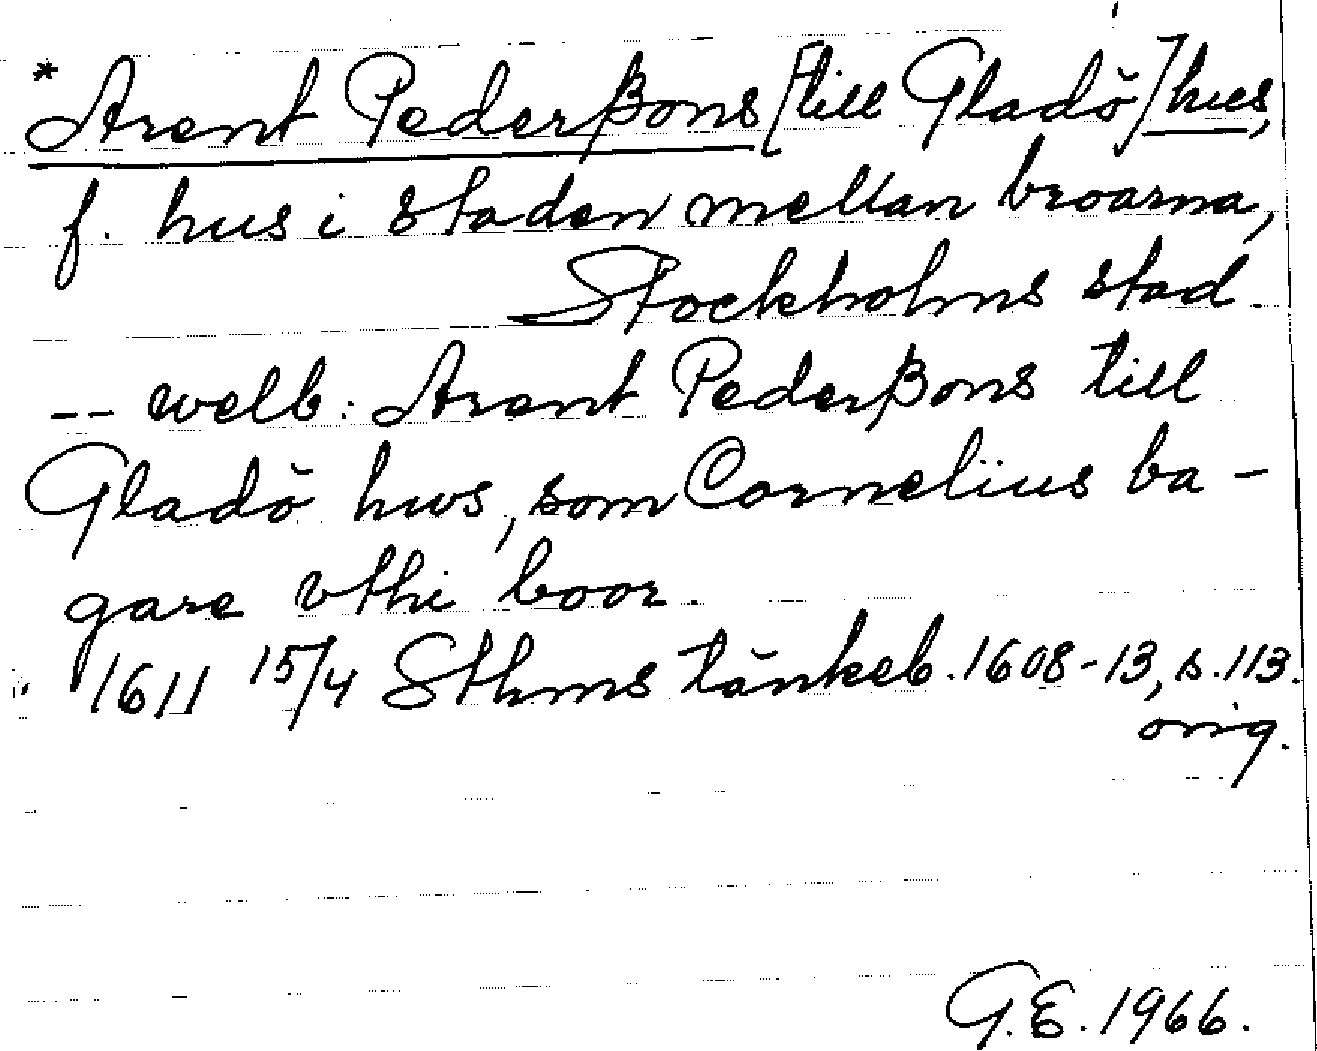 *Arent Pederßons [till Gladö] hus,
f. hus i staden mellan broarna,
Stockholms stad.
-- welb: Arent Pederßons till
Gladö hws, som Cornelius ba-
gare vthi boor.
1611 15/4 Sthms tänkeb. 1608-13, s. 113.
orig.
G.E. 1966.